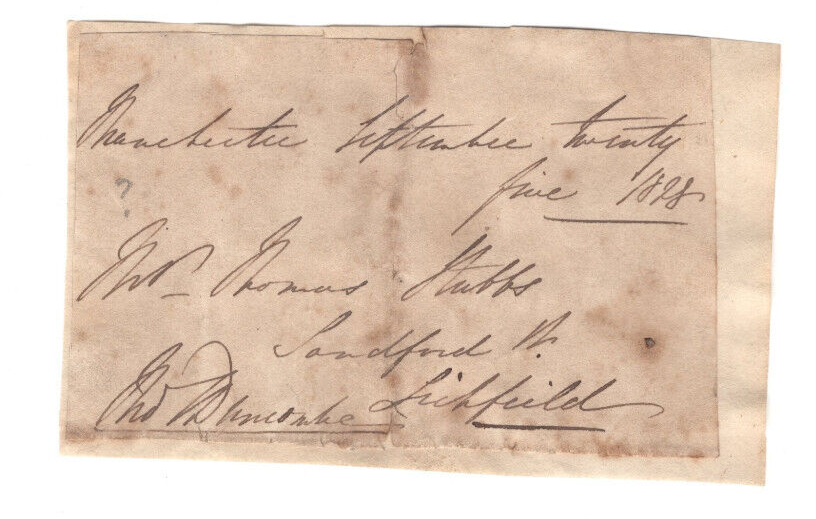 Manchester September twenty
five 1828
?
Mr. Thomas Stubbs
Sandford St.
Lichfield
Thos Duncombe